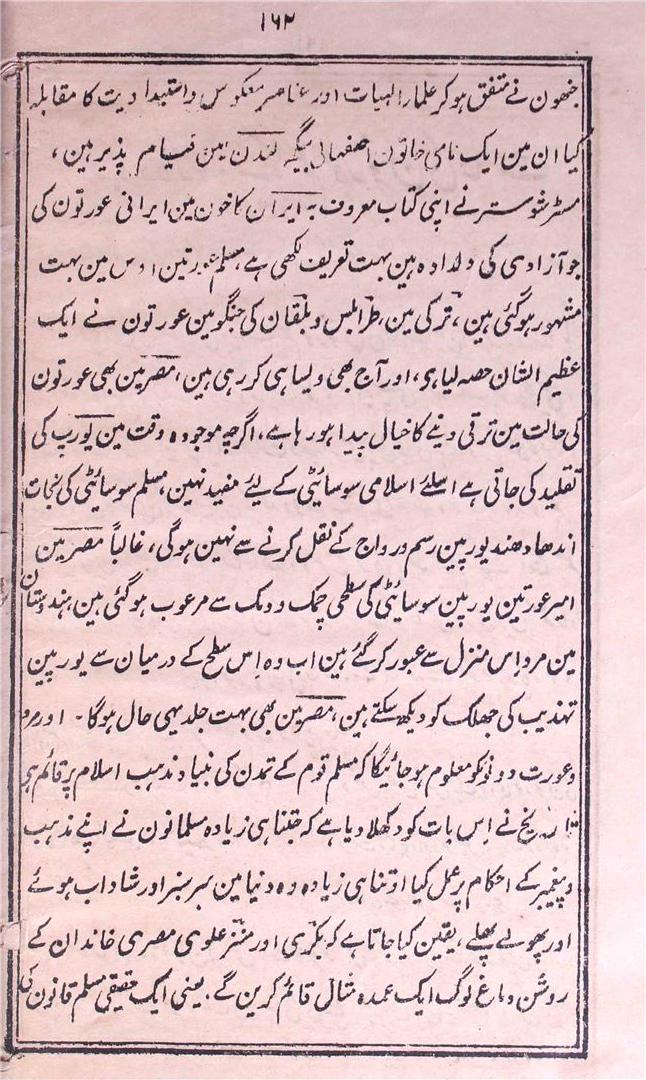 ۱۶۲
جنھون نے متفق ہو کر علماء الہیات اور عناصر معکوس و استبدادیت کا مقابلہ
کیا ان مین ایک نامی خاتون اصفہانی بیگم لندن مین قیام پذیر ہین،
مسٹر شوستر نے اپنی کتاب معروف بہ ایران کا خون مین ایرانی عورتون کی
جو آزادی کی دلدادہ ہین بہت تعریف لکھی ہے، مسلم عورتین اوس مین بہت
مشہور ہو گئی ہین، ترکی مین، طرابلس و بلقان کی جنگو مین عورتون نے ایک
عظیم الشان حصہ لیا ہی، اور آج بھی ویسا ہی کر رہی ہین، مصر مین بھی عورتون
کی حالت مین ترقی دینے کا خیال پیدا ہو رہا ہے، اگرچہ موجودہ وقت مین یورپ کی
تقلید کی جاتی ہے اسلئے اسلامی سوسائٹی کے لیئے مفید نہین، مسلم سوسائٹی کی نجات
اندھا دھند یورپین رسم و رواج کے نقل کرنے سے نہین ہوگی، غالباً مصر مین
امیر عورتین یورپین سوسائٹی کی سطحی چمک دمک سے مرعوب ہو گئی ہین، ہندوستان
مین مرد اِس منزل سے عبور کر گئے ہین اب وہ اِس سطح کے درمیان سے یورپین
تہذیب کی جھلک کو دیکھ سکتے ہین، مصر مین بھی بہت جلد یہی حال ہوگا۔ اور مرد
و عورت دونو کو معلوم ہو جائیگا کہ مسلم قوم کے تمدن کی بنیاد مذہب اسلام پر قائم ہی
تاریخ نے اِس بات کو دکھلا دیا ہے کہ جتنا ہی زیادہ مسلمانون نے اپنے مذہب
و پیغمبر کے احکام پر عمل کیا اوتنا ہی زیادہ وہ دنیا مین سر سبز اور شاداب ہوئے
اور پھولے پھلے، یقین کیا جاتا ہے کہ بکری اور معزز علوی مصری خاندان کے
روشن دماغ لوگ ایک عمدہ مثال قائم کرین گے۔ یعنی ایک حقیقی مسلم قانون کی